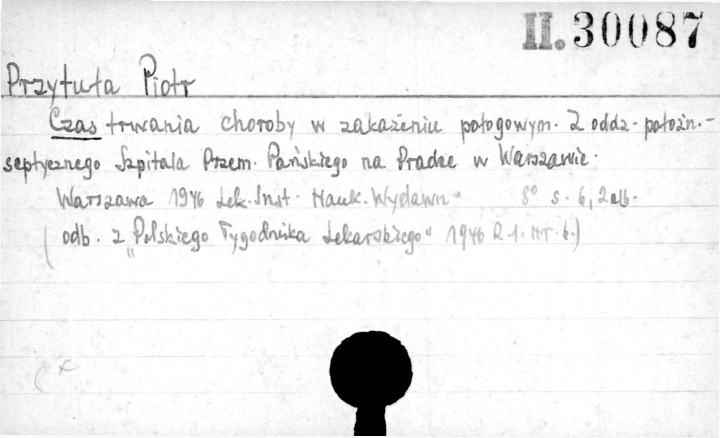 II. 30087
Przytuła Piotr
Czas trwania choroby w zakażeniu połogowym. Z oddz. położn.-
septycznego Szpitala Przem. Pańskiego na Pradze w Warszawie.
Warszawa 1946 Lek. Inst. Nauk. Wydawn. 8° s. 6, 2 alb.
(odb. z „Polskiego Tygodnika Lekarskiego" 1946 R. 1. nr. 6.)